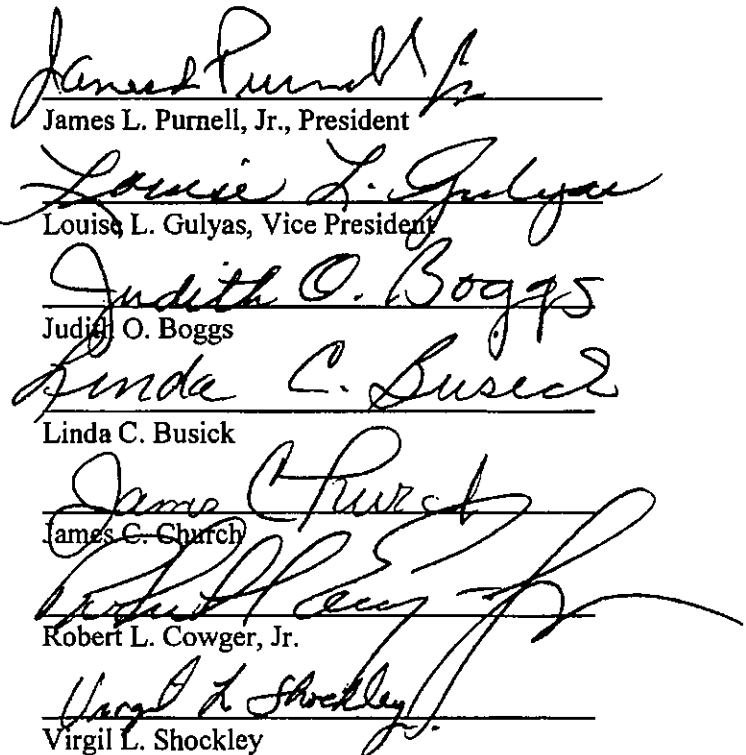 James L Purnell Jr
James L. Purnell, Jr., President
Louise L. Gulyas
Louise L. Gulyas, Vice President
Judith O. Boggs
Judith O. Boggs
Linda C. Busick
Linda C. Busick
James C Church
James C. Church
Robert L Cowger Jr
Robert L. Cowger, Jr.
Virgil L Shockley
Virgil L. Shockley